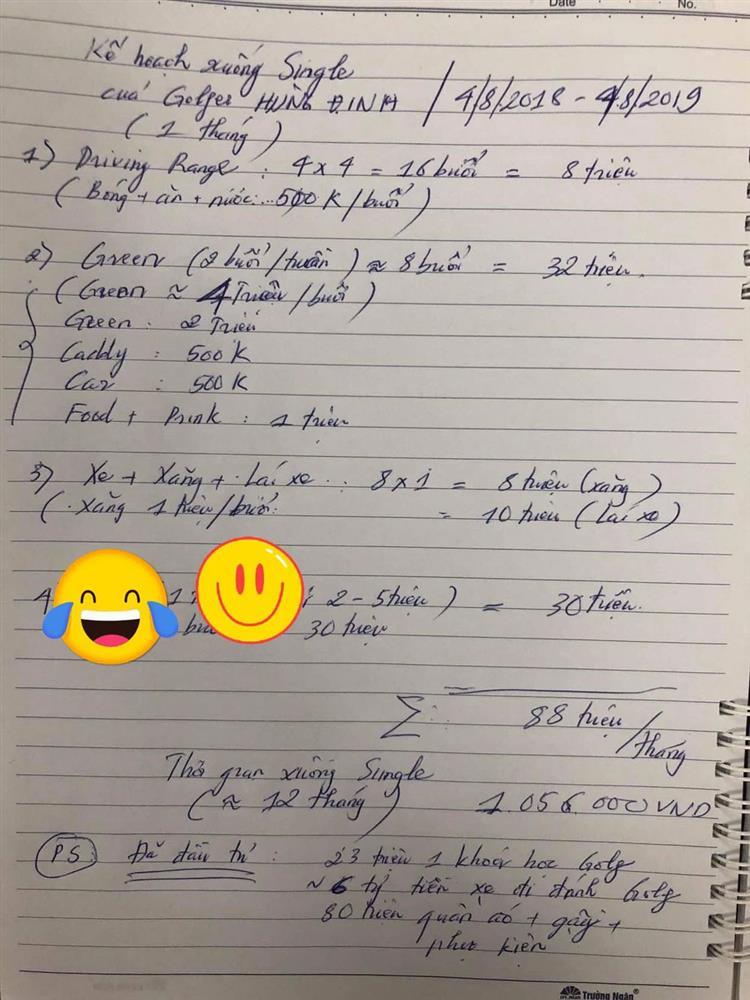 Date
No.
Kế hoạch xuống Single
của Golfer HÙNG ĐINH / 4/8/2018 - 4/8/2019
( 1 tháng )
1) Driving Range : 4 x 4 = 16 buổi = 8 triệu
( Bóng + ăn + nước... 500 K / buổi )
2) Green (2 buổi / tuần ) ≈ 8 buổi = 32 triệu.
( Green ≈ 4 Triệu / buổi )
Green : 2 Triệu
Caddy : 500 K
Car : 500 K
Food + Drink : 1 triệu
3) Xe + Xăng + Lái xe : 8 x 1 = 8 triệu (xăng)
( Xăng 1 triệu / buổi = 10 triệu ( Lái xe )
4 (1 : 2 - 5 triệu ) = 30 triệu.
30 triệu
Σ : 88 triệu / tháng
Thời gian xuống Single
( ≈ 12 tháng ) 1.056.000 VND
PS: Đã đầu tư : 23 triệu 1 khoá học Golf
~ 6 tỷ tiền xe đi đánh Golf
80 triệu quần áo + gậy +
phụ kiện
Trường Ngân®